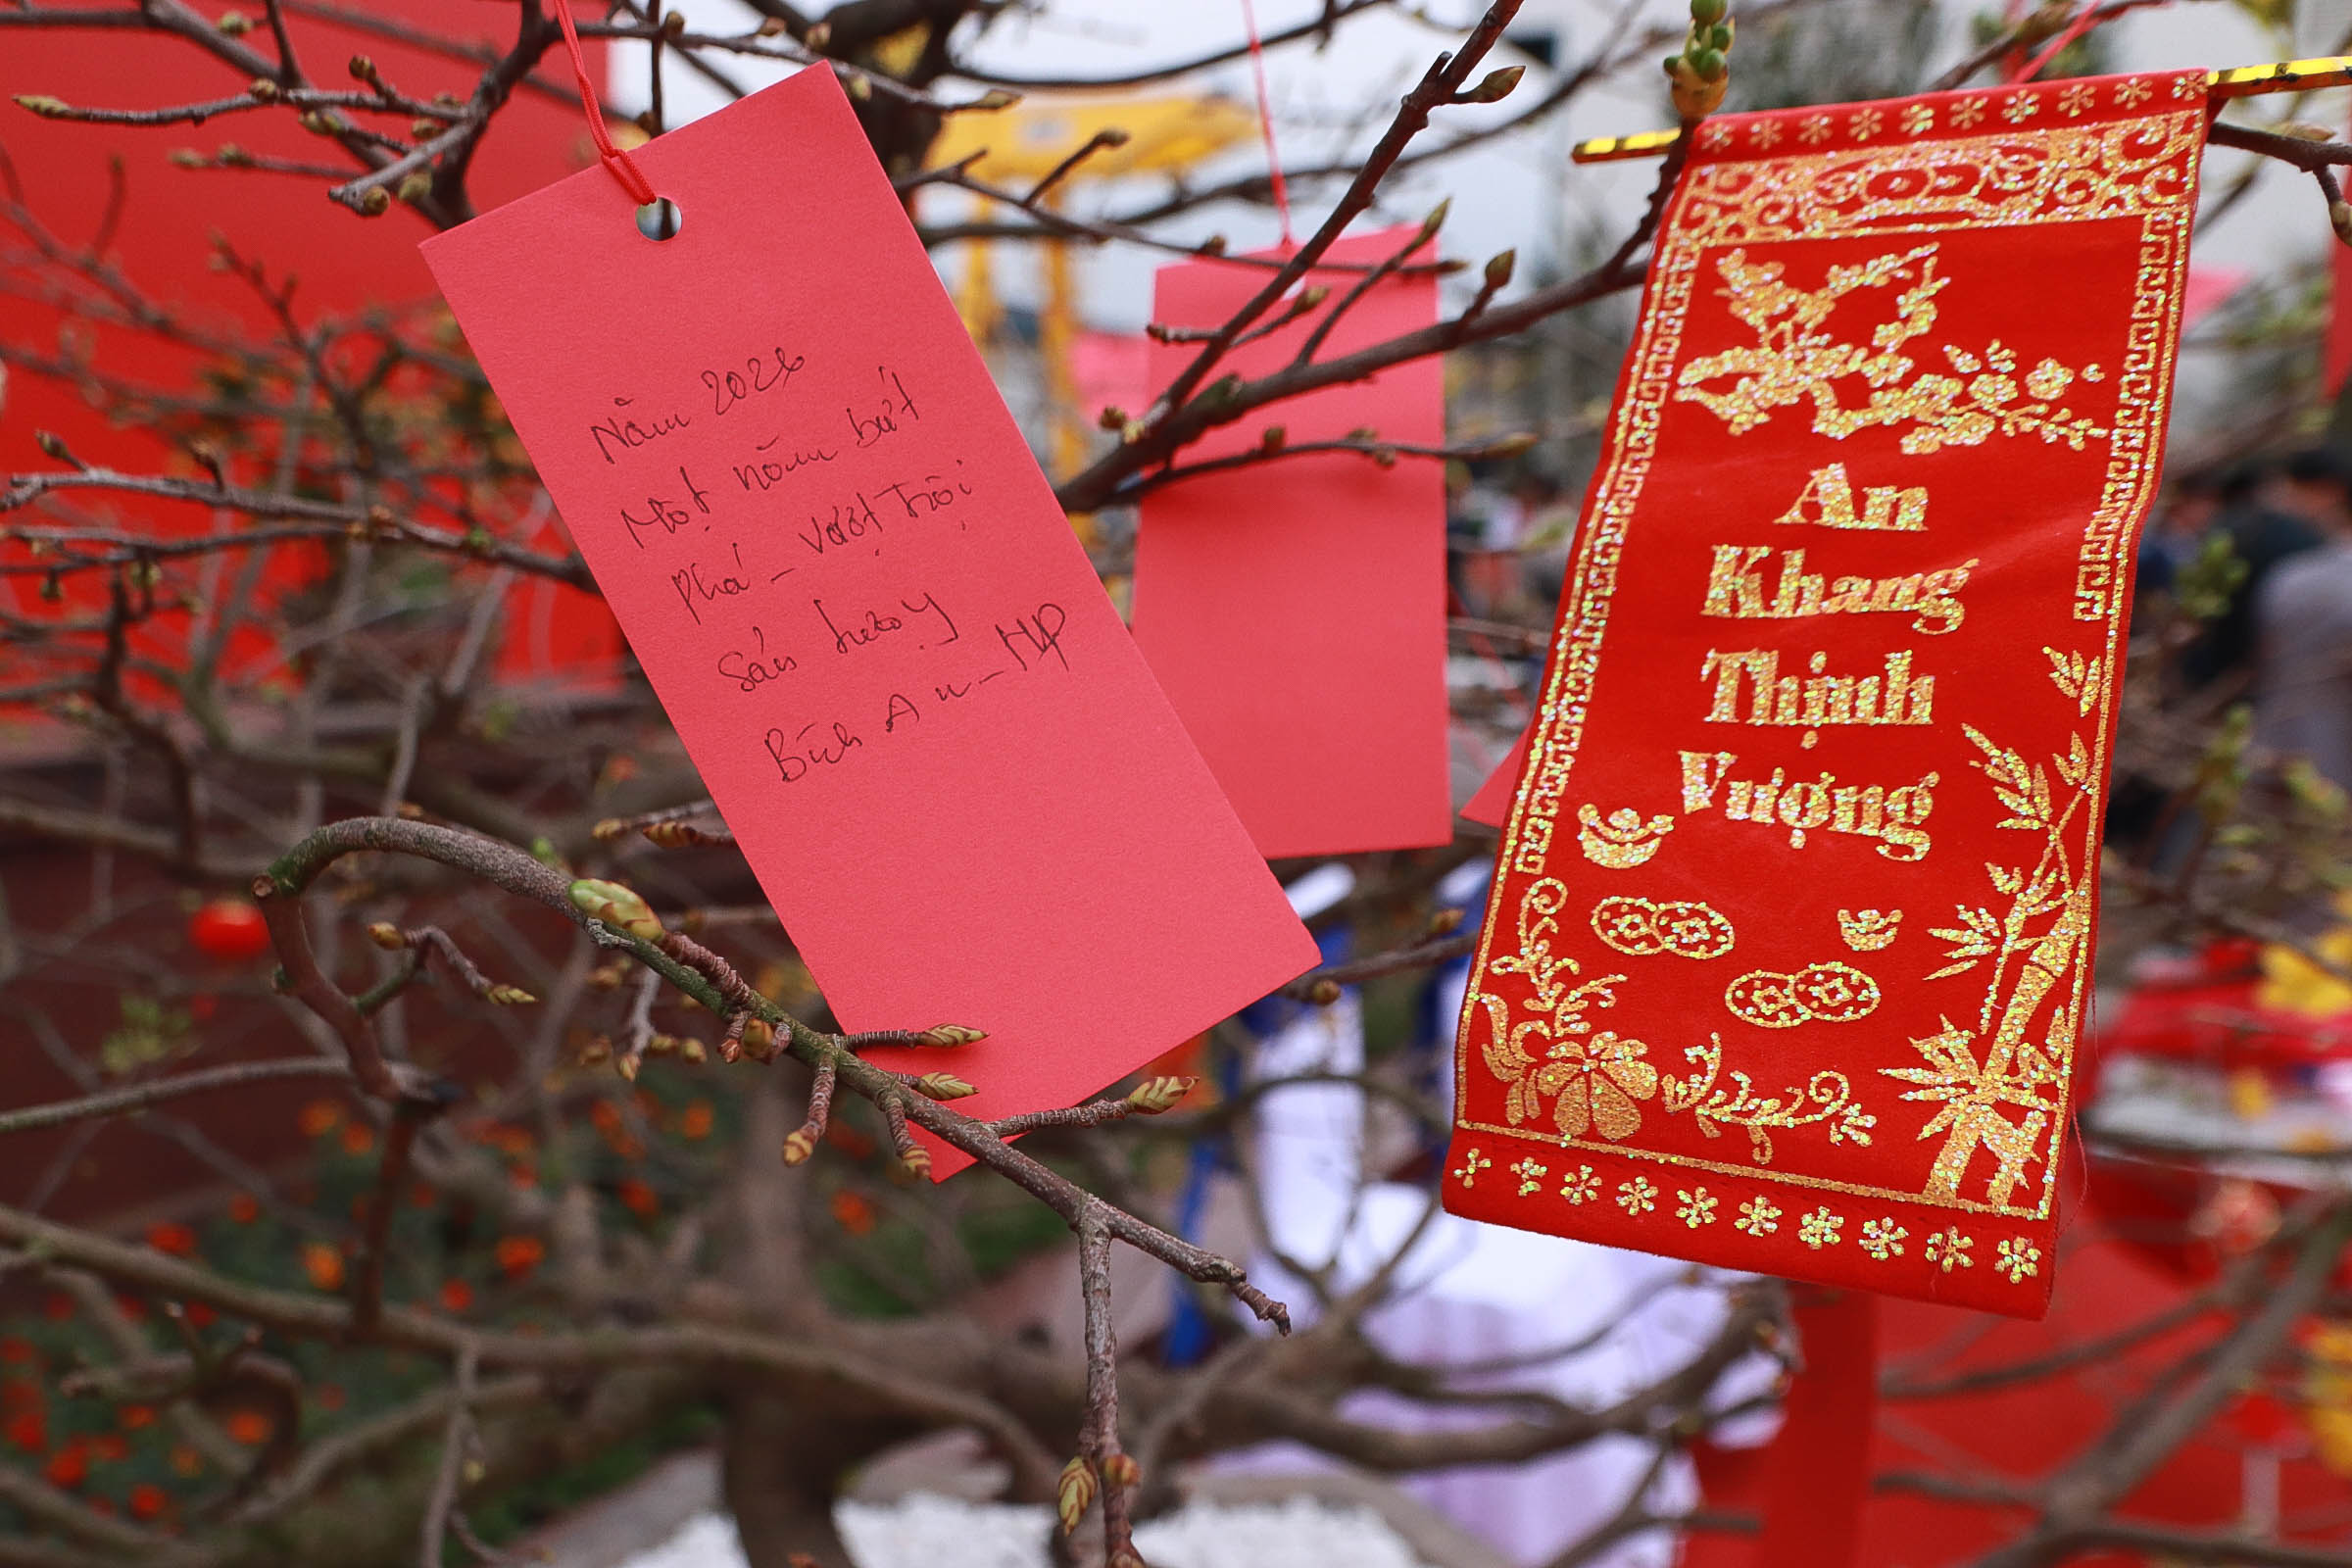 Năm 2026
Một năm bứt
phá - vượt trội
Bích An - HP
An
Khang
Thịnh
Vượng